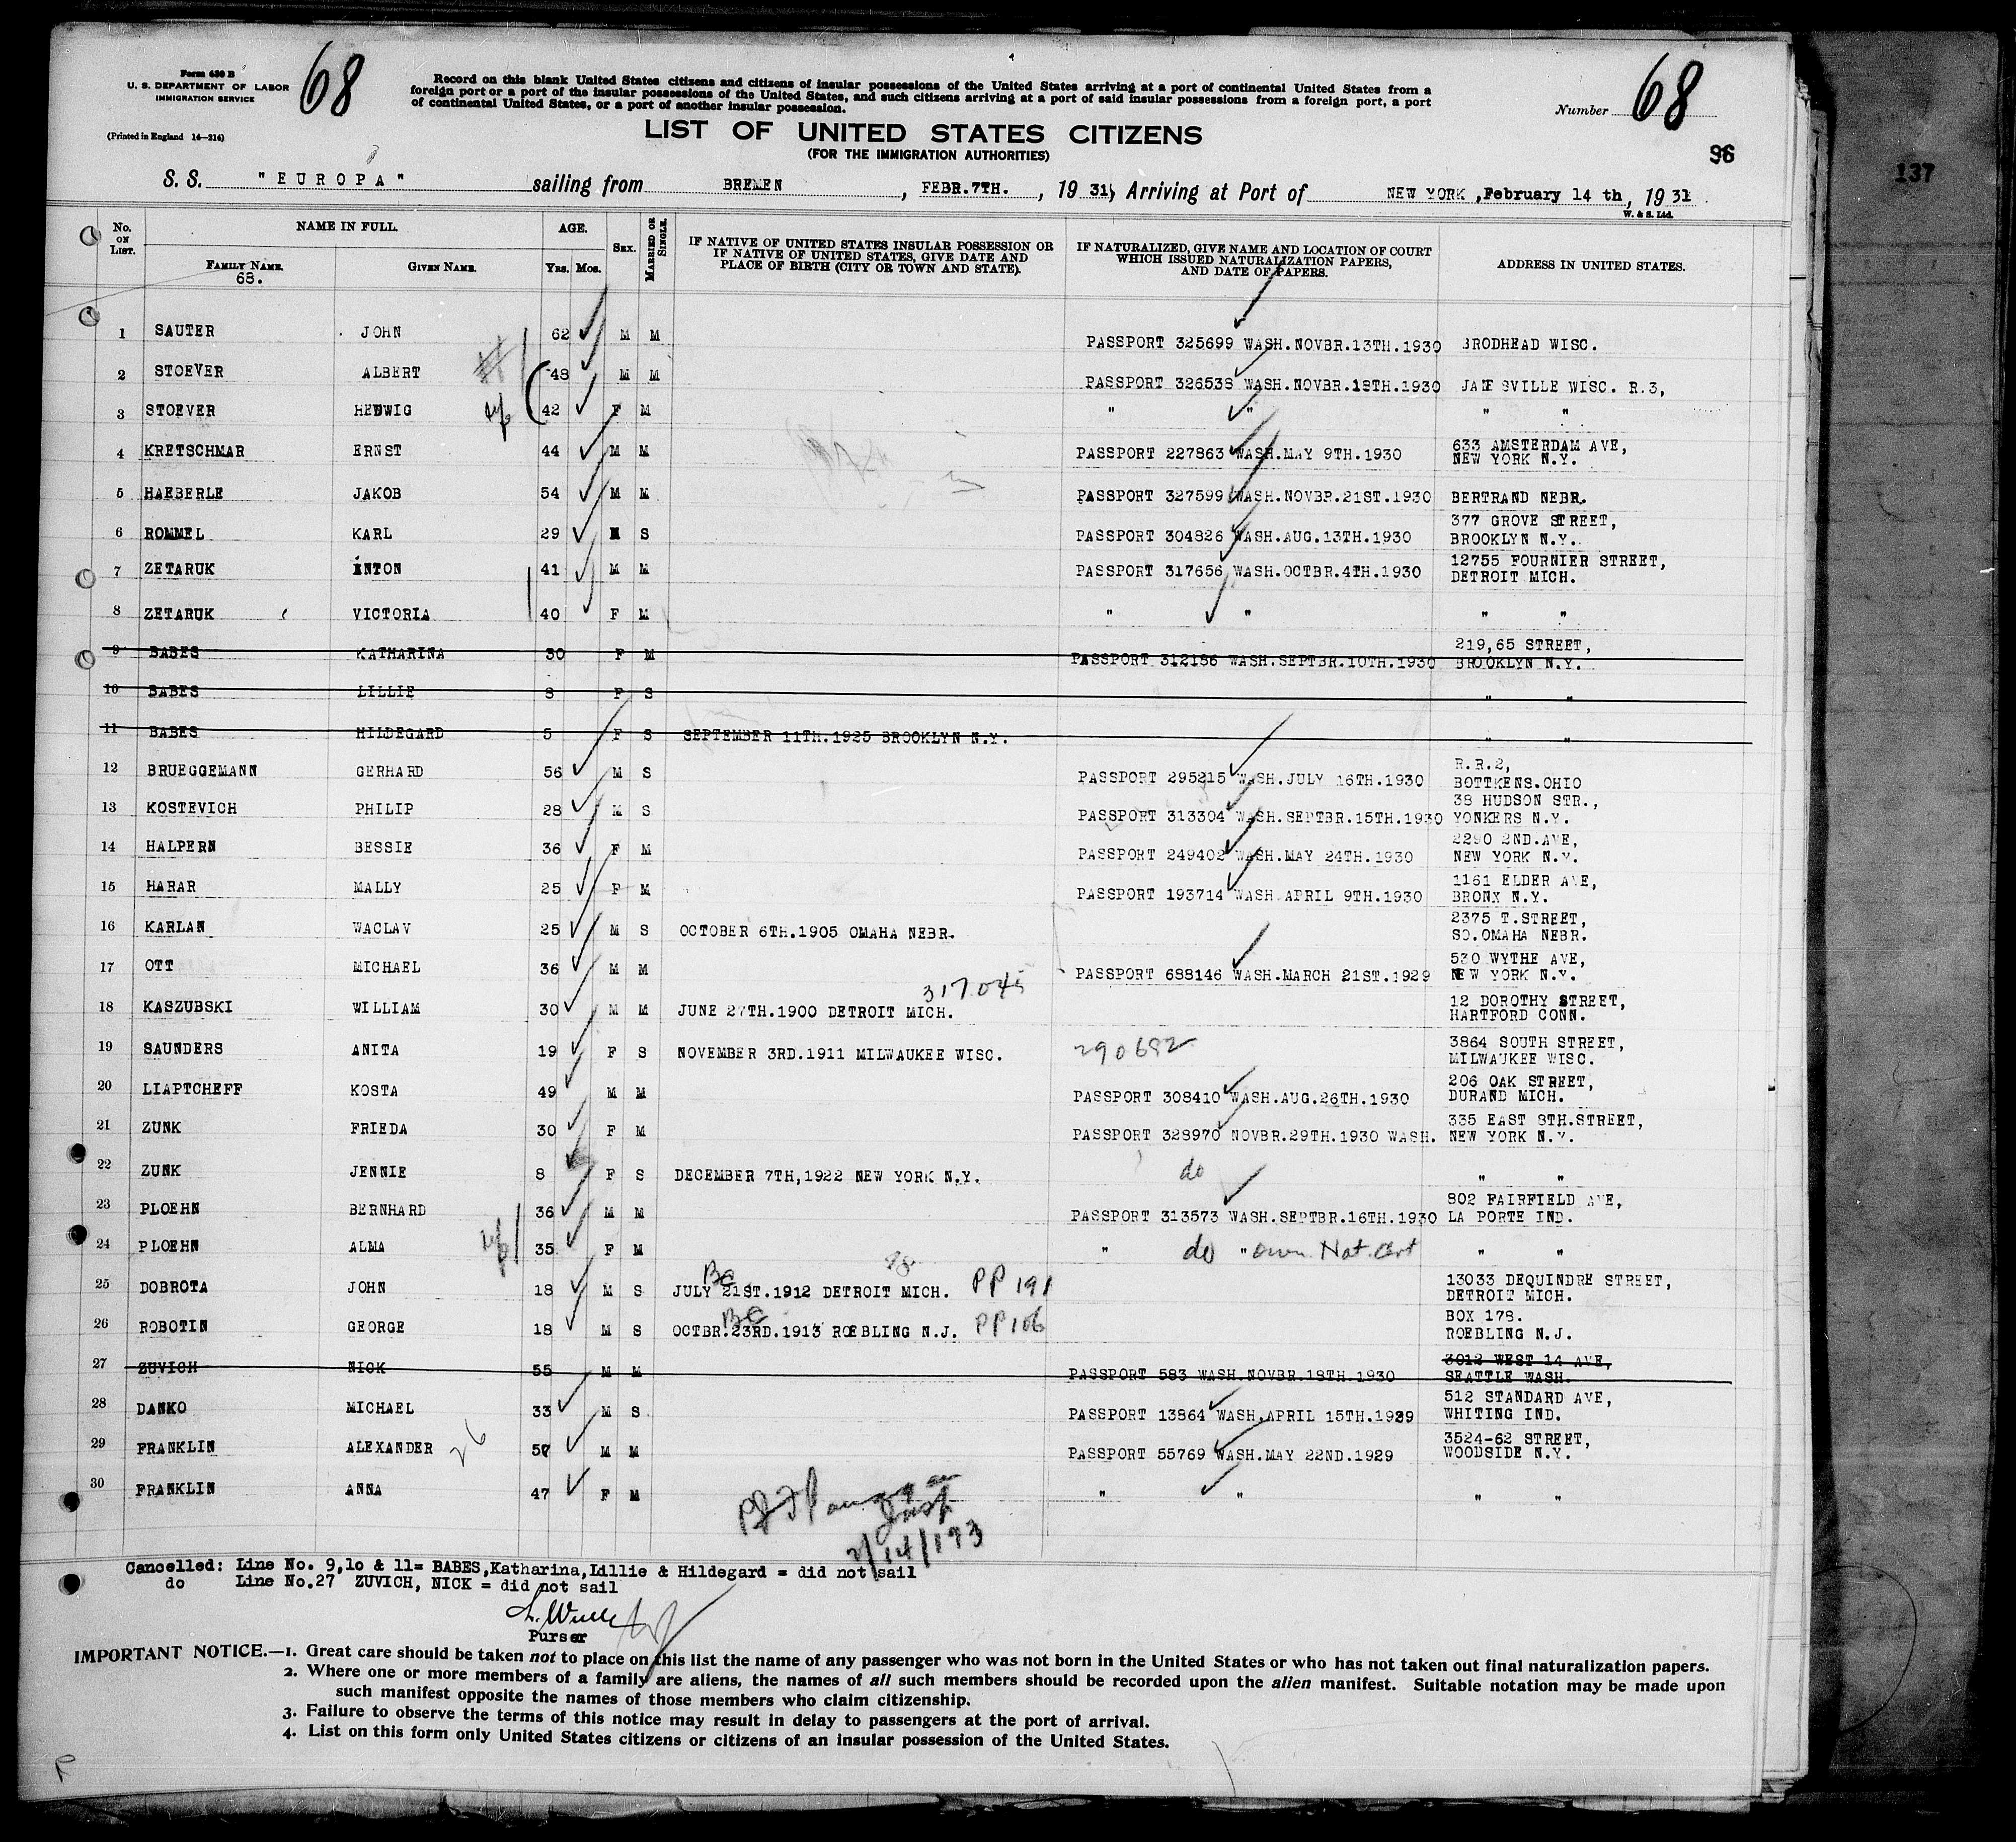 Form 630 B
U. S. DEPARTMENT OF LABOR
IMMIGRATION SERVICE
(Printed in England 14—214)
68
Record on this blank United States citizens and citizens of insular possessions of the United States arriving at a port of continental United States from a
foreign port or a port of the insular possessions of the United States, and such citizens arriving at a port of said insular possessions from a foreign port, a port
of continental United States, or a port of another insular possession.
Number 68
LIST OF UNITED STATES CITIZENS
(FOR THE IMMIGRATION AUTHORITIES)
96
137
S. S. "EUROPA" sailing from BREMEN, FEBR.7TH., 19 31, Arriving at Port of NEW YORK, February 14 th, 19 31
W. & S. Ltd.
No. ON LIST. NAME IN FULL. AGE. SEX. MARRIED OR SINGLE. IF NATIVE OF UNITED STATES INSULAR POSSESSION OR IF NATIVE OF UNITED STATES, GIVE DATE AND PLACE OF BIRTH (CITY OR TOWN AND STATE). IF NATURALIZED, GIVE NAME AND LOCATION OF COURT WHICH ISSUED NATURALIZATION PAPERS, AND DATE OF PAPERS. ADDRESS IN UNITED STATES.
FAMILY NAME. GIVEN NAME. Yrs. Mos.
68.
1 SAUTER JOHN 62 M M PASSPORT 325699 WASH.NOVBR.13TH.1930 BRODHEAD WISC.
2 STOEVER ALBERT 48 M M PASSPORT 326538 WASH.NOVBR.18TH.1930 JANESVILLE WISC. R.3,
3 STOEVER HEDWIG 42 F M " " " "
4 KRETSCHMAR ERNST 44 M M PASSPORT 227863 WASH.MAY 9TH.1930 633 AMSTERDAM AVE, NEW YORK N.Y.
5 HAEBERLE JAKOB 54 M M PASSPORT 327599 WASH.NOVBR.21ST.1930 BERTRAND NEBR.
6 ROMMEL KARL 29 M S PASSPORT 304826 WASH.AUG.13TH.1930 377 GROVE STREET, BROOKLYN N.Y.
7 ZETARUK ANTON 41 M M PASSPORT 317656 WASH.OCTBR.4TH.1930 12755 FOURNIER STREET, DETROIT MICH.
8 ZETARUK VICTORIA 40 F M " " " "
9 BABES KATHARINA 30 F M PASSPORT 312186 WASH.SEPTBR.10TH.1930 219,65 STREET, BROOKLYN N.Y.
10 BABES LILLIE 8 F S " "
11 BABES HILDEGARD 5 F S SEPTEMBER 11TH.1925 BROOKLYN N.Y. " "
12 BRUEGGEMANN GERHARD 56 M S PASSPORT 295215 WASH.JULY 16TH.1930 R.R.2, BOTTKENS.OHIO
13 KOSTEVICH PHILIP 28 M S PASSPORT 313304 WASH.SEPTBR.15TH.1930 38 HUDSON STR., YONKERS N.Y.
14 HALPERN BESSIE 36 F M PASSPORT 249402 WASH.MAY 24TH.1930 2290 2ND.AVE, NEW YORK N.Y.
15 HARAR MALLY 25 F M PASSPORT 193714 WASH.APRIL 9TH.1930 1161 ELDER AVE, BRONX N.Y.
16 KARLAN WACLAV 25 M S OCTOBER 6TH.1905 OMAHA NEBR. 2375 T.STREET, SO.OMAHA NEBR.
17 OTT MICHAEL 36 M M PASSPORT 688146 WASH.MARCH 21ST.1929 530 WYTHE AVE, NEW YORK N.Y.
18 KASZUBSKI WILLIAM 30 M M JUNE 27TH.1900 DETROIT MICH. 317045 12 DOROTHY STREET, HARTFORD CONN.
19 SAUNDERS ANITA 19 F S NOVEMBER 3RD.1911 MILWAUKEE WISC. 290692 3864 SOUTH STREET, MILWAUKEE WISC.
20 LIAPTCHEFF KOSTA 49 M M PASSPORT 308410 WASH.AUG.26TH.1930 206 OAK STREET, DURAND MICH.
21 ZUNK FRIEDA 30 F M PASSPORT 328970 NOVBR.29TH.1930 WASH. 335 EAST 8TH.STREET, NEW YORK N.Y.
22 ZUNK JENNIE 8 F S DECEMBER 7TH,1922 NEW YORK N.Y. do " "
23 PLOEHN BERNHARD 36 M M PASSPORT 313573 WASH.SEPTBR.16TH.1930 802 FAIRFIELD AVE, LA PORTE IND.
24 PLOEHN ALMA 35 F M " do " own Nat. Cert " "
25 DOBROTA JOHN 18 M S BC JULY 21ST.1912 DETROIT MICH. PP 191 13033 DEQUINDRE STREET, DETROIT MICH.
26 ROBOTIN GEORGE 18 M S BC OCTBR.23RD.1913 ROEBLING N.J. PP 106 BOX 178. ROEBLING N.J.
27 ZUVICH NICK 55 M M PASSPORT 583 WASH.NOVBR.18TH.1930 3012 WEST 14 AVE, SEATTLE WASH.
28 DANKO MICHAEL 33 M S PASSPORT 13864 WASH.APRIL 15TH.1929 512 STANDARD AVE, WHITING IND.
29 FRANKLIN ALEXANDER 26 50 M M PASSPORT 55769 WASH.MAY 22ND.1929 3524-62 STREET, WOODSIDE N.Y.
30 FRANKLIN ANNA 47 F M " " " "
Insp.
2/14/193
Cancelled: Line No. 9,10 & 11= BABES,Katharina,Lillie & Hildegard = did not sail
do Line No.27 ZUVICH, NICK = did not sail
Purser
IMPORTANT NOTICE.—1. Great care should be taken not to place on this list the name of any passenger who was not born in the United States or who has not taken out final naturalization papers.
2. Where one or more members of a family are aliens, the names of all such members should be recorded upon the alien manifest. Suitable notation may be made upon
such manifest opposite the names of those members who claim citizenship.
3. Failure to observe the terms of this notice may result in delay to passengers at the port of arrival.
4. List on this form only United States citizens or citizens of an insular possession of the United States.